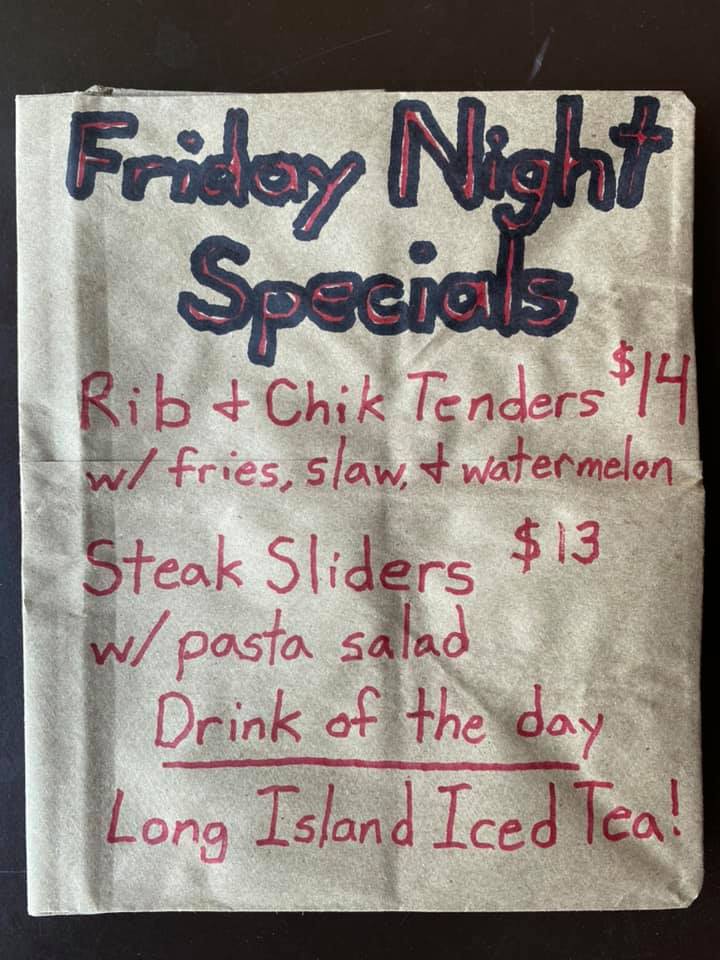 Friday Night
Specials
Rib & Chik Tenders $14
w/ fries, slaw, & watermelon
Steak Sliders $13
w/ pasta salad
Drink of the day
Long Island Iced Tea!